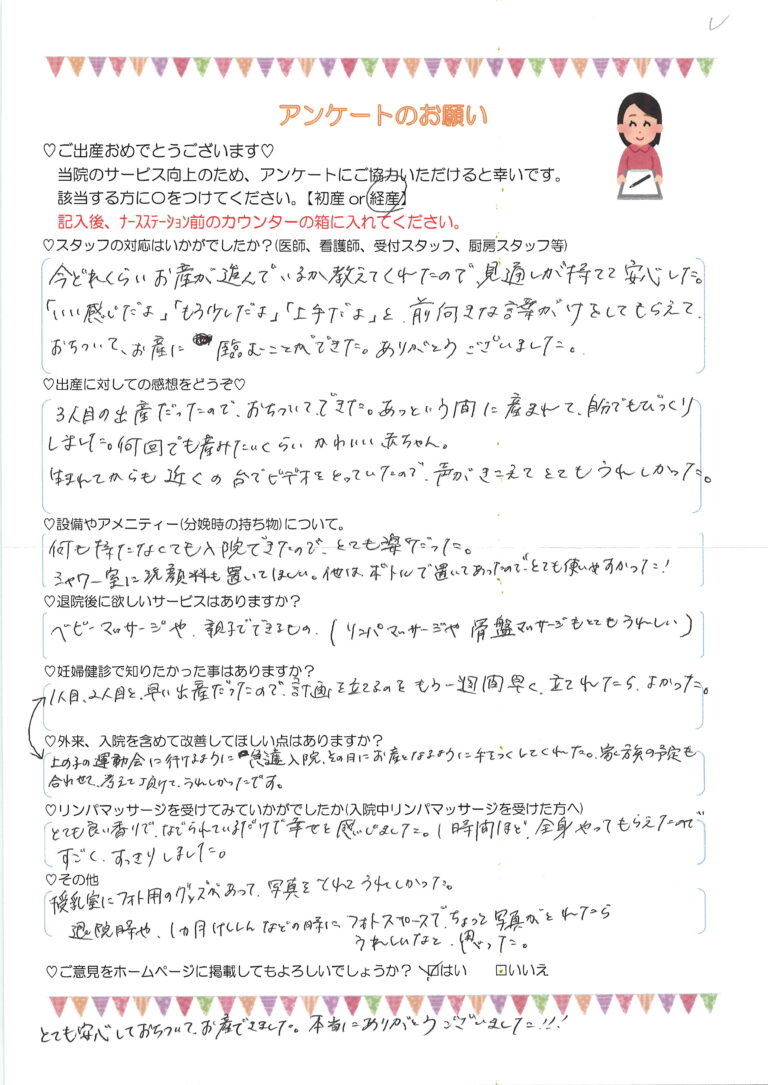 アンケートのお願い
♡ご出産おめでとうございます♡
当院のサービス向上のため、アンケートにご協力いただけると幸いです。
該当する方に〇をつけてください。【初産 or 経産】
記入後、ﾅｰｽｽﾃｰｼｮﾝ前のカウンターの箱に入れてください。
♡スタッフの対応はいかがでしたか？(医師、看護師、受付スタッフ、厨房スタッフ等)
今どれくらいお産が進んでいるか教えてくれたので、見通しが持てて安心した。
「いい感じだよ」「もう少しだよ」「上手だよ」と、前向きな言葉がけをしてもらえて、
おちついて、お産に臨むことができた。ありがとうございました。
♡出産に対しての感想をどうぞ♡
3人目の出産だったので、おちついてできた。あっという間に産まれて、自分でもびっくり
しました。何回でも産みたいくらいかわいい赤ちゃん。
生まれてからも近くの台でビデオをとっていたので、声がきこえてとてもうれしかった。
♡設備やアメニティー(分娩時の持ち物)について。
何も持たなくても入院できたので、とても楽だった。
シャワー室に洗顔料も置いてほしい。他はボトルで置いてあったので、とても使いやすかった！
♡退院後に欲しいサービスはありますか？
ベビーマッサージや、親子でできるもの、(リンパマッサージや骨盤マッサージもとてもうれしい)
♡妊婦健診で知りたかった事はありますか？
1人目、2人目と、早い出産だったので、計画を立てるのをもう一週間早く、立てれたら、よかった。
♡外来、入院を含めて改善してほしい点はありますか？
上の子の運動会に行けるように急遽入院、その日にお産となるように手をつくしてくれた。家族の予定も
合わせて、考えて頂けて、うれしかったです。
♡リンパマッサージを受けてみていかがでしたか(入院中リンパマッサージを受けた方へ)
とても良い香りで、なでられているだけで幸せと感じました。1時間ほど、全身やってもらえたので
すごく、すっきりしました。
♡その他
授乳室にフォト用のグッズがあって、写真をとれてうれしかった。
退院時や、1か月けんしんなどの時にフォトスペースで、ちょっと写真がとれたら
うれしいなと、思った。
♡ご意見をホームページに掲載してもよろしいでしょうか？ ☑はい □いいえ
とても安心しておちついて、お産できました。本当にありがとうございました!!!